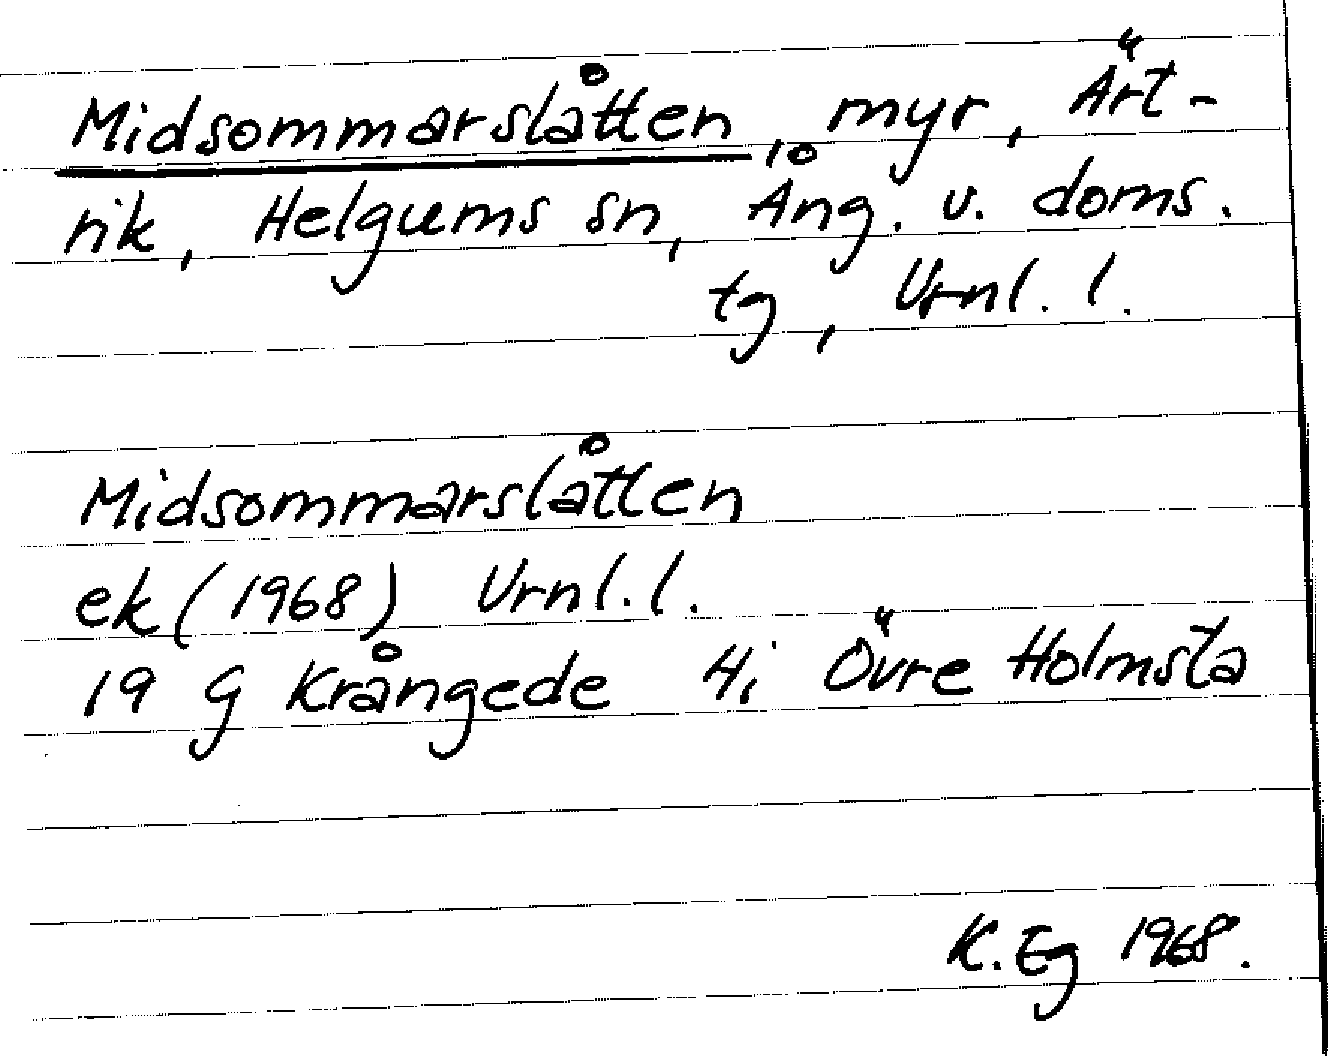 Midsommarslåtten, myr, Ärt-
rik, Helgums sn, Ång. v. doms.
tg, Vrnl. l.
Midsommarslåtten
ek (1968) Vrnl. l.
19 G Krångede 4i Övre Holmsta
K. Eg 1968.